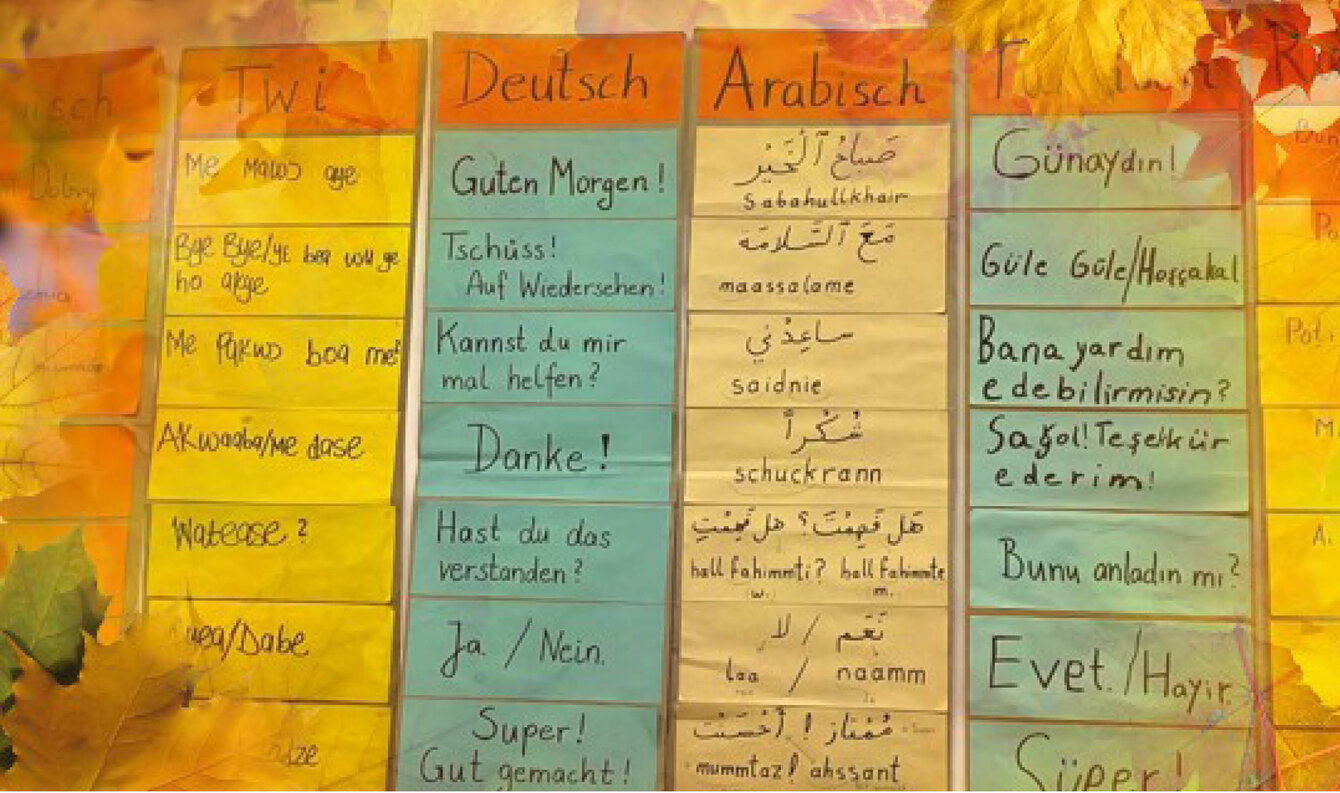 Twi
Me Mawɔ aye
Bye Bye/yɛ bea
ho akye
Me boa me?
Akwaaba/Me dase
Watease?
/Dabe
Deutsch
Guten Morgen!
Tschüss!
Auf Wiedersehen!
Kannst du mir
mal helfen?
Danke!
Hast du das
verstanden?
Ja / Nein.
Super!
Gut gemacht!
Arabisch
صَبَاحُ ٱلْخَيْر
sabahullkhair
مَعَ ٱلسَّلَامَة
maassalame
ساعِدْني
saidnie
شُكْراً
schuckrann
هَل فَهِمْتَ؟ هل فَهِمْتِ
hall fahimmti? hall fahimmte
w. m.
نَعَم / لا
laa / naamm
مُمْتاز! أَحْسَنْت
mummtaz! ahssant
Günaydın!
Güle Güle/Hoşçakal
Bana yardım
edebilirmisin?
Sağol! Teşekkür
ederim!
Bunu anladın mı?
Evet./Hayır.
Süper!